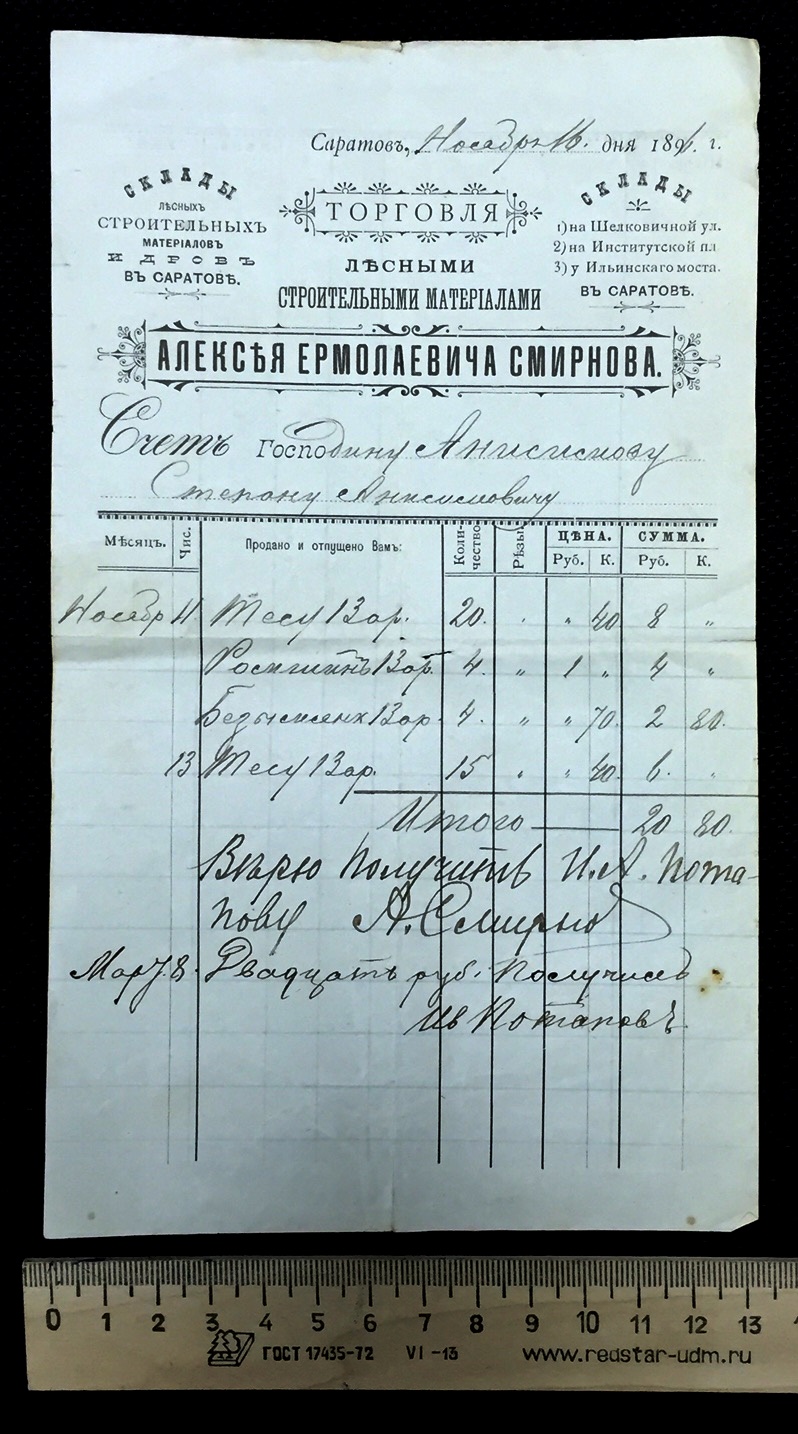 Саратовъ, Ноября 16. дня 1891. г.
СКЛАДЫ
ЛѢСНЫХЪ
СТРОИТЕЛЬНЫХЪ
МАТЕРІАЛОВЪ
И ДРОВЪ
ВЪ САРАТОВѢ.
ТОРГОВЛЯ
ЛѢСНЫМИ
СТРОИТЕЛЬНЫМИ МАТЕРІАЛАМИ
СКЛАДЫ
1) на Шелковичной ул.
2) на Институтской пл
3) у Ильинскаго моста.
ВЪ САРАТОВѢ.
АЛЕКСѢЯ ЕРМОЛАЕВИЧА СМИРНОВА.
Счетъ Господину Анисимову
Степану Анисимовичу
Мѣсяцъ. Чис. Продано и отпущено Вамъ: Количество Рѣзы. ЦѢНА. СУММА.
Руб. К. Руб. К.
Ноябр 11 Тесу 13 ар. 20. " " 40 8 "
13 ар. 4. " 1 " 4 "
13 ар. 4. " " 70. 2 80.
13 Тесу 13 ар. 15 " " 40. 6. "
Итого — 20 80.
Вѣрю Получить И. А. Пота-
пову А. Смирно
Мар 8. Двадцать руб. Получилъ
Ив Потаповъ
0 1 2 3 4 5 6 7 8 9 10 11 12 13
ГОСТ 17435-72 VI-13 www.redstar-udm.ru